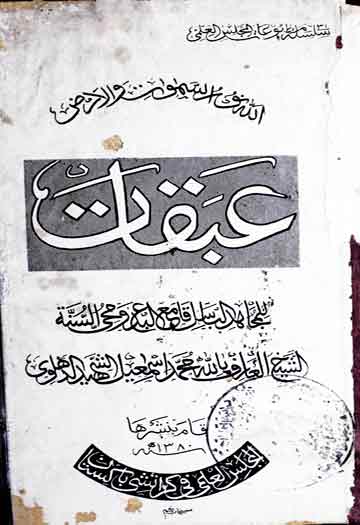 سلسلة مطبوعات المجلس العلمي
الله نور السموات والارض
عبقات
للمجاهد الباسل قامع البدعة ومحي السنة
الشيخ العارف بالله محمد اسمعيل الشهيد الدهلوي
قام بنشرها
١٣٨٠ه
المجلس العلمي في كراتشي باكستان